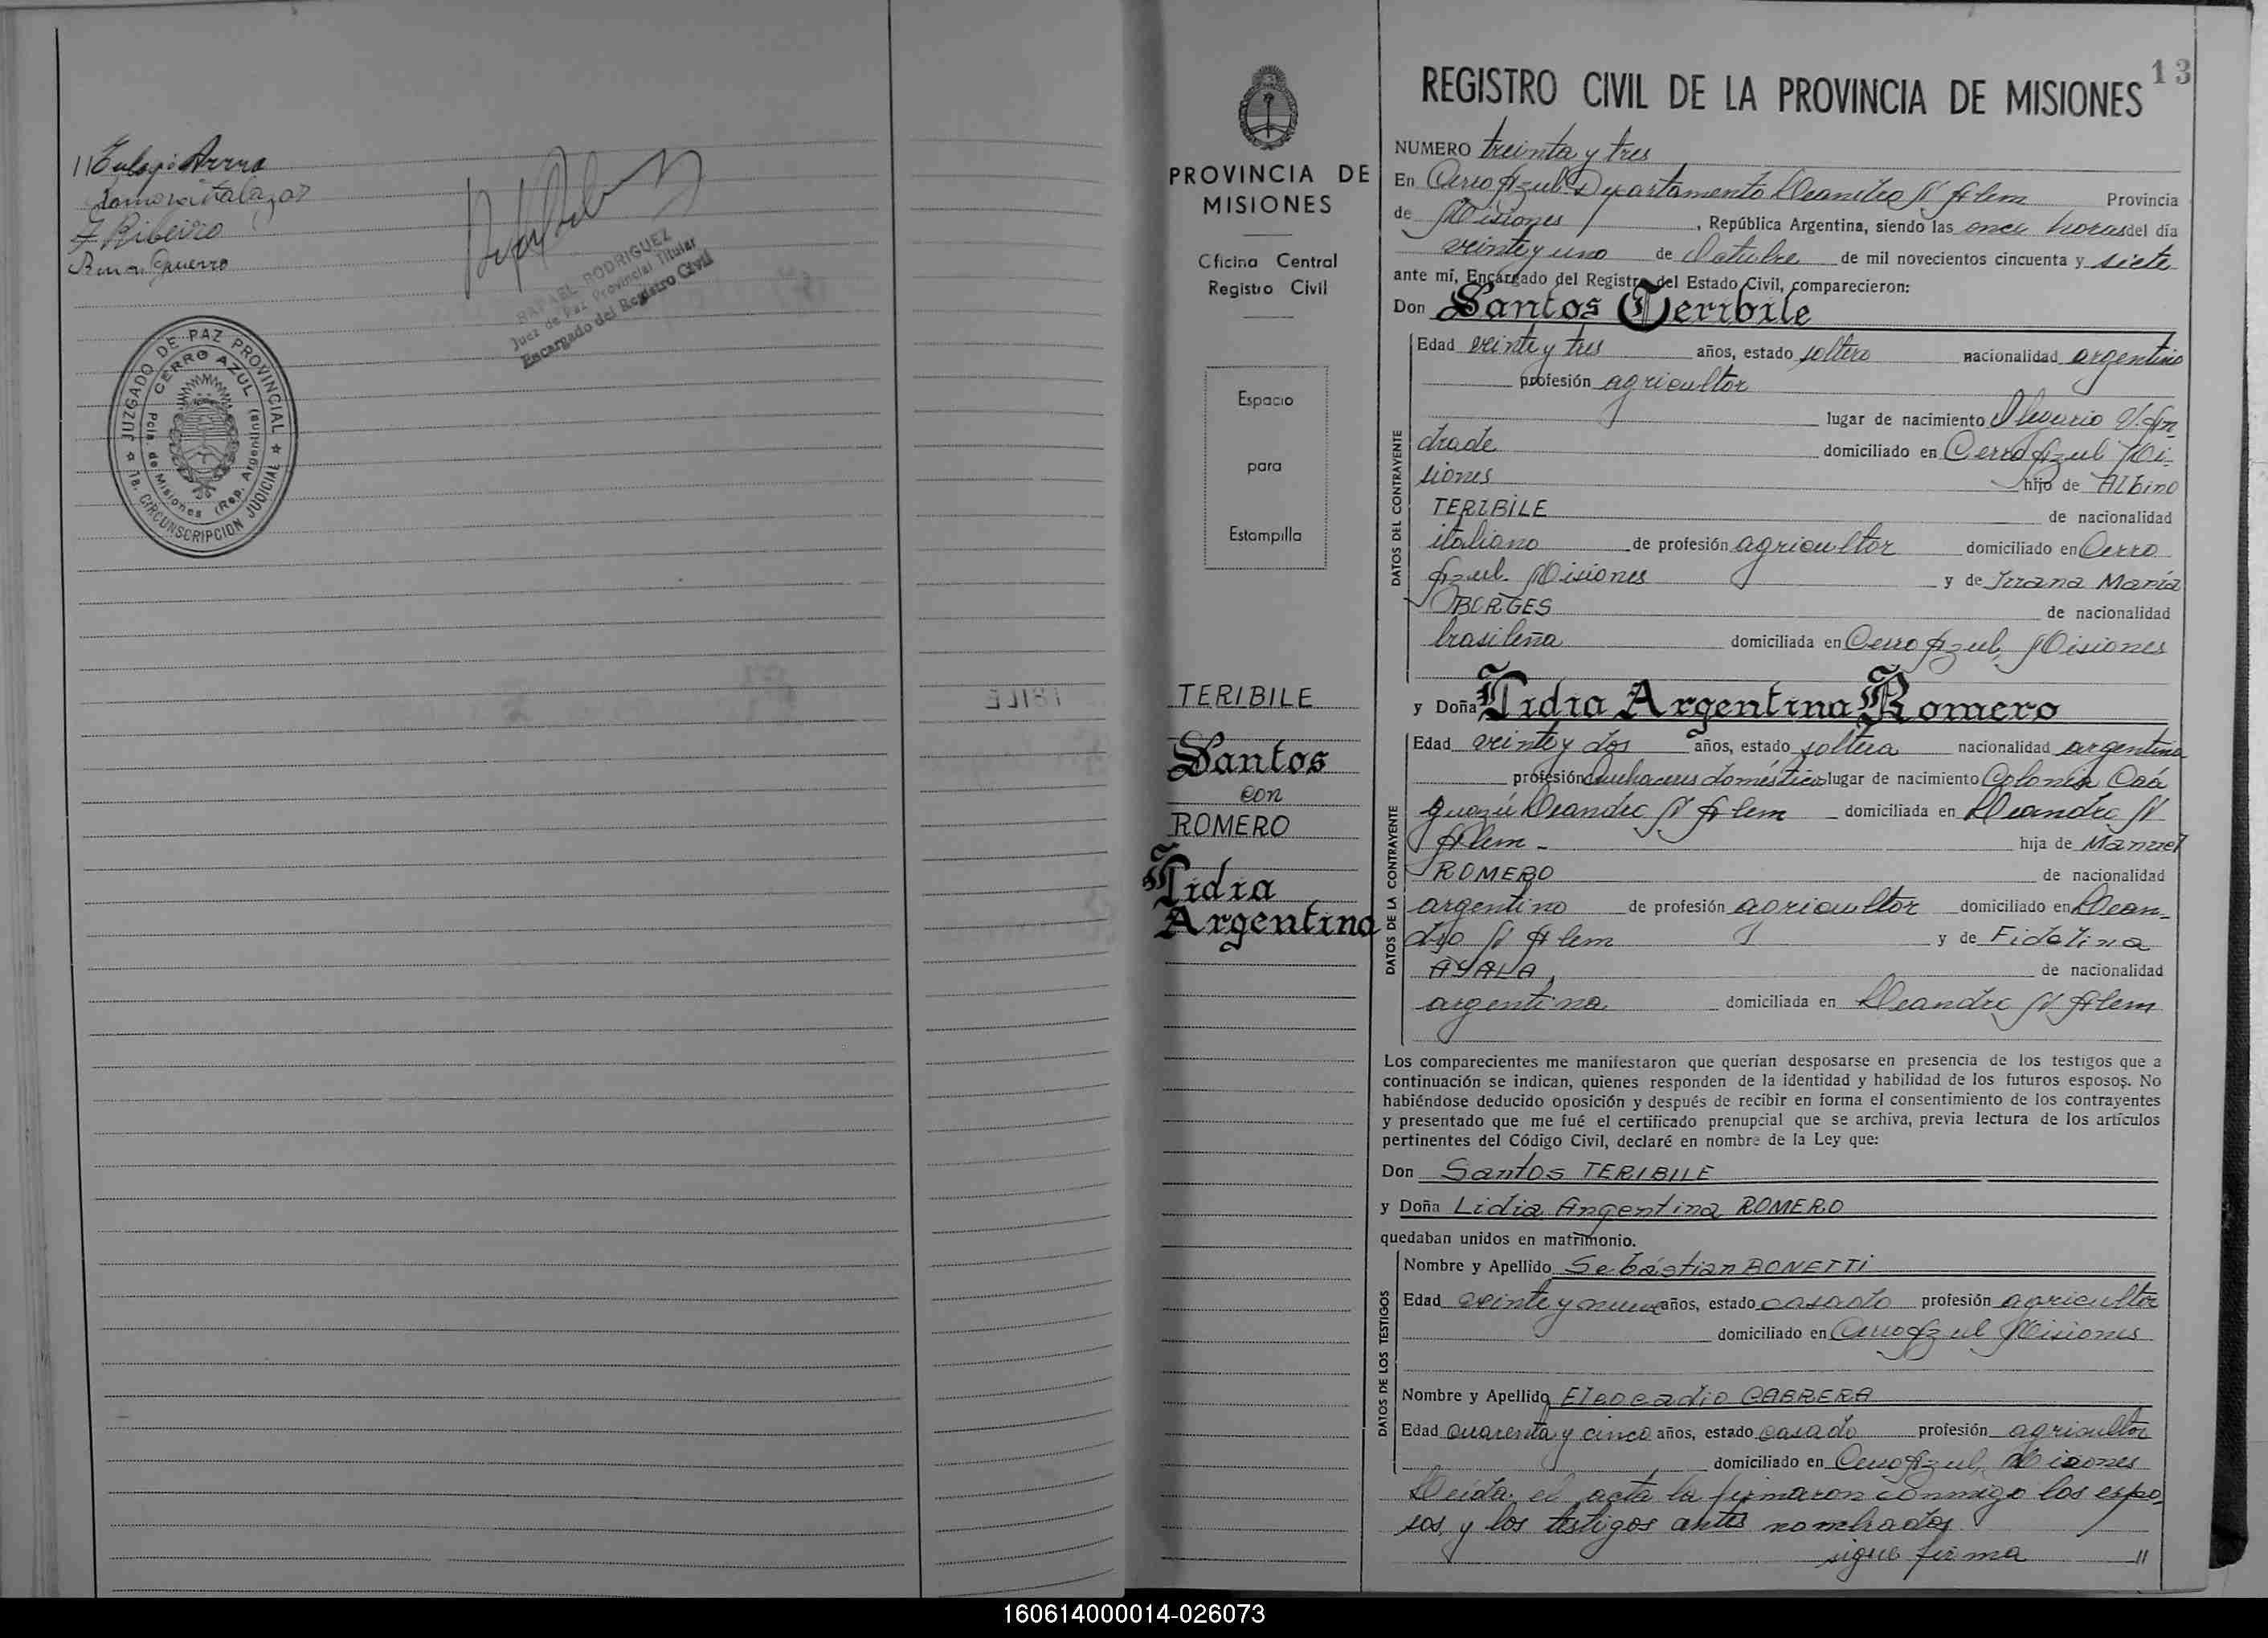 Ramona Salazar
F Ribeiro
RAFAEL RODRIGUEZ
Juez de Paz Provincial Titular
Encargado del Registro Civil
JUZGADO DE PAZ PROVINCIAL
CERRO AZUL
Pcia. de Misiones (Rep. Argentina)
1a. CIRCUNSCRIPCION JUDICIAL
PROVINCIA DE
MISIONES
Oficina Central
Registro Civil
Espacio
para
Estampilla
TERIBILE
Santos
con
ROMERO
Lidia
Argentina
13
REGISTRO CIVIL DE LA PROVINCIA DE MISIONES
NUMERO treinta y tres
En Cerro Azul Departamento Leandro N Alem Provincia
de Misiones, República Argentina, siendo las once horas del día
veinte y uno de Octubre de mil novecientos cincuenta y siete
ante mí, Encargado del Registro del Estado Civil, comparecieron:
Don Santos Teribile
DATOS DEL CONTRAYENTE
Edad veinte y tres años, estado soltero nacionalidad argentino
profesión agricultor
lugar de nacimiento Olegario V. An-
drade domiciliado en Cerro Azul Mi-
siones hijo de Albino
TERIBILE de nacionalidad
italiano de profesión agricultor domiciliado en Cerro
Azul. Misiones y de Juana María
BORGES de nacionalidad
brasileña domiciliada en Cerro Azul, Misiones
y Doña Lidia Argentina Romero
DATOS DE LA CONTRAYENTE
Edad veinte y dos años, estado soltera nacionalidad argentina
profesión Quehaceres domésticos lugar de nacimiento Colonia Caá
guazú Leandro N Alem domiciliada en Leandro N
Alem - hija de Manuel
ROMERO de nacionalidad
argentino de profesión agricultor domiciliado en Lean-
dro N Alem y de Fidelina
AYALA, de nacionalidad
argentina domiciliada en Leandro N Alem
Los comparecientes me manifestaron que querían desposarse en presencia de los testigos que a
continuación se indican, quienes responden de la identidad y habilidad de los futuros esposos. No
habiéndose deducido oposición y después de recibir en forma el consentimiento de los contrayentes
y presentado que me fué el certificado prenupcial que se archiva, previa lectura de los artículos
pertinentes del Código Civil, declaré en nombre de la Ley que:
Don Santos TERIBILE
y Doña Lidia Argentina ROMERO
quedaban unidos en matrimonio.
DATOS DE LOS TESTIGOS
Nombre y Apellido Sebástian BONETTI
Edad veinte y nueve años, estado casado profesión agricultor
domiciliado en Cerro Azul Misiones
Nombre y Apellido Eleocadio CABRERA
Edad cuarenta y cinco años, estado casado profesión agricultor
domiciliado en Cerro Azul, Misiones
Leída el acta la firmaron conmigo los espo-
sos y los testigos antes nombrados
sigue firma //
160614000014-026073